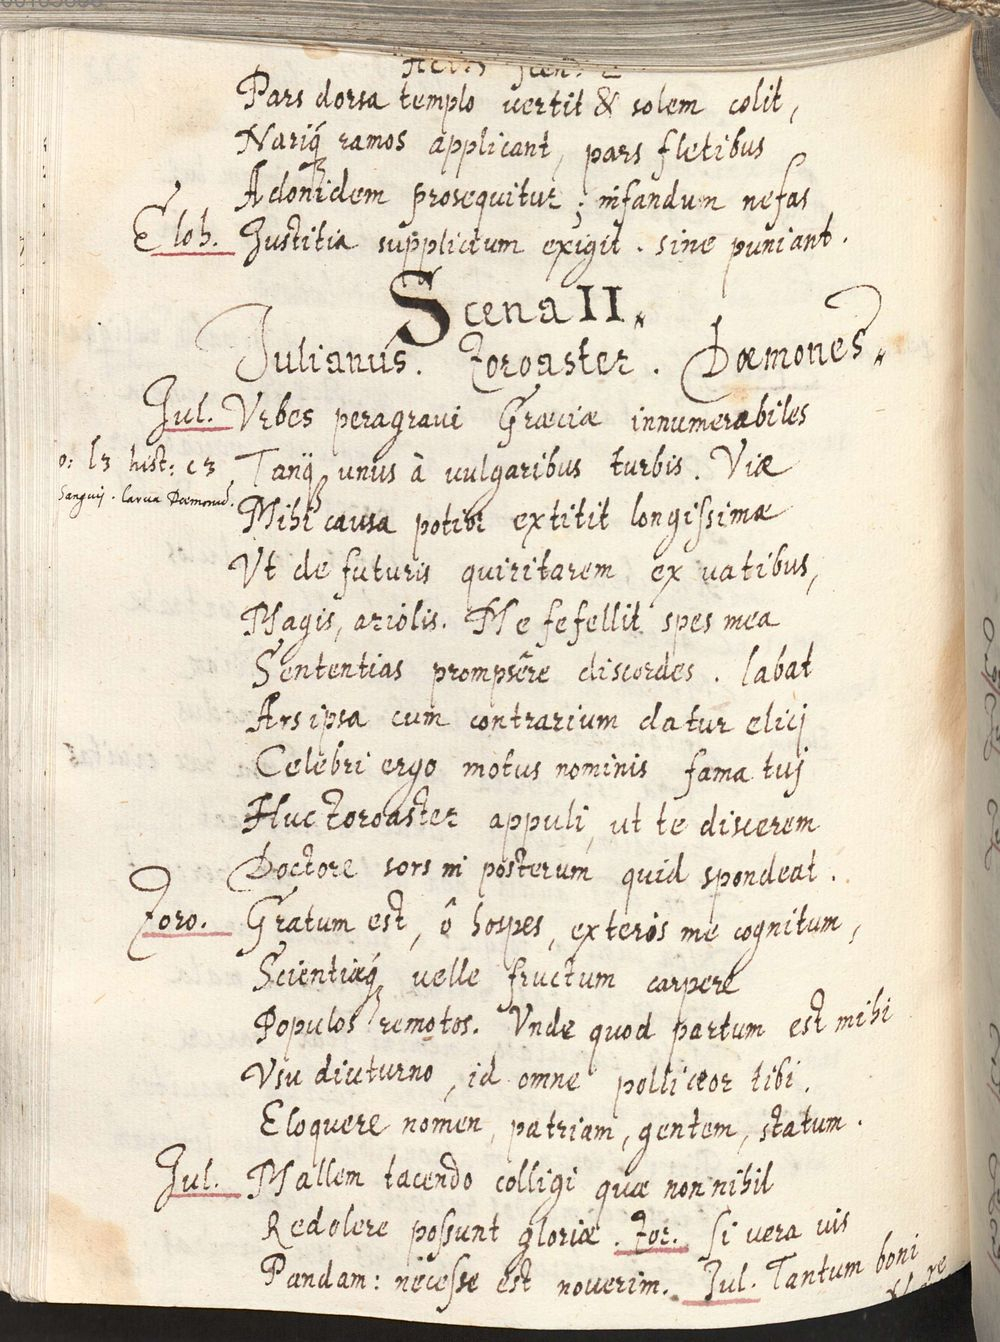 Pars dorsa templo vertit & solem colit,
Nariq́ ramos applicant, pars fletibus
Adonidem prosequitur; infandum nefas
Elob. Justitia supplicium exigit. sine puniant.
Scena II.
Julianus. Zoroaster. Dæmones.
Jul. Vrbes peragravi Græciæ innumerabiles
o: l3 hist: c3 Tanq́ unus à vulgaribus turbis. Viæ
Sanguij. larva Dæmonũ. Mihi causa potior extitit longissimæ
Vt de futuris quiritarem ex vatibus,
Magis, ariolis. Me fefellit spes mea
Sententias prompsêre discordes. labat
Ars ipsa cum contrarium datur elicj
Celebri ergo motus nominis fama tuj
Huc Zoroaster appuli, ut te discerem
Doctore sors in posterum quid spondeat.
Zoro. Gratum est, ô hospes, exteros me cognitum,
Scientiæq́ velle fructum carpere
Populos remotos. Vnde quod partum est mihi
Vsu diuturno, id omne polliceor tibi.
Eloquere nomen, patriam, gentem, statum.
Jul. Mallem tacendo colligi quæ non nihil
Redolere possunt gloriæ. Zor. Si vera vis
Pandam: necesse est noverim. Jul. Tantum boni